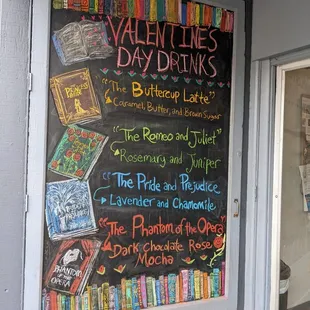 VALENTINES
DAY DRINKS
"The Buttercup Latte"
Caramel, Butter, and Brown Sugar
"The Romeo and Juliet"
Rosemary and Juniper
"The Pride and Prejudice
Lavender and Chamomile
"The Phantom of the Opera
Dark Chocolate Rose
Mocha
PHANTOM